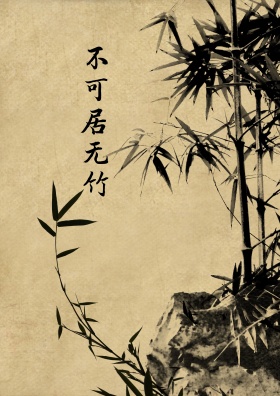 不可居无竹